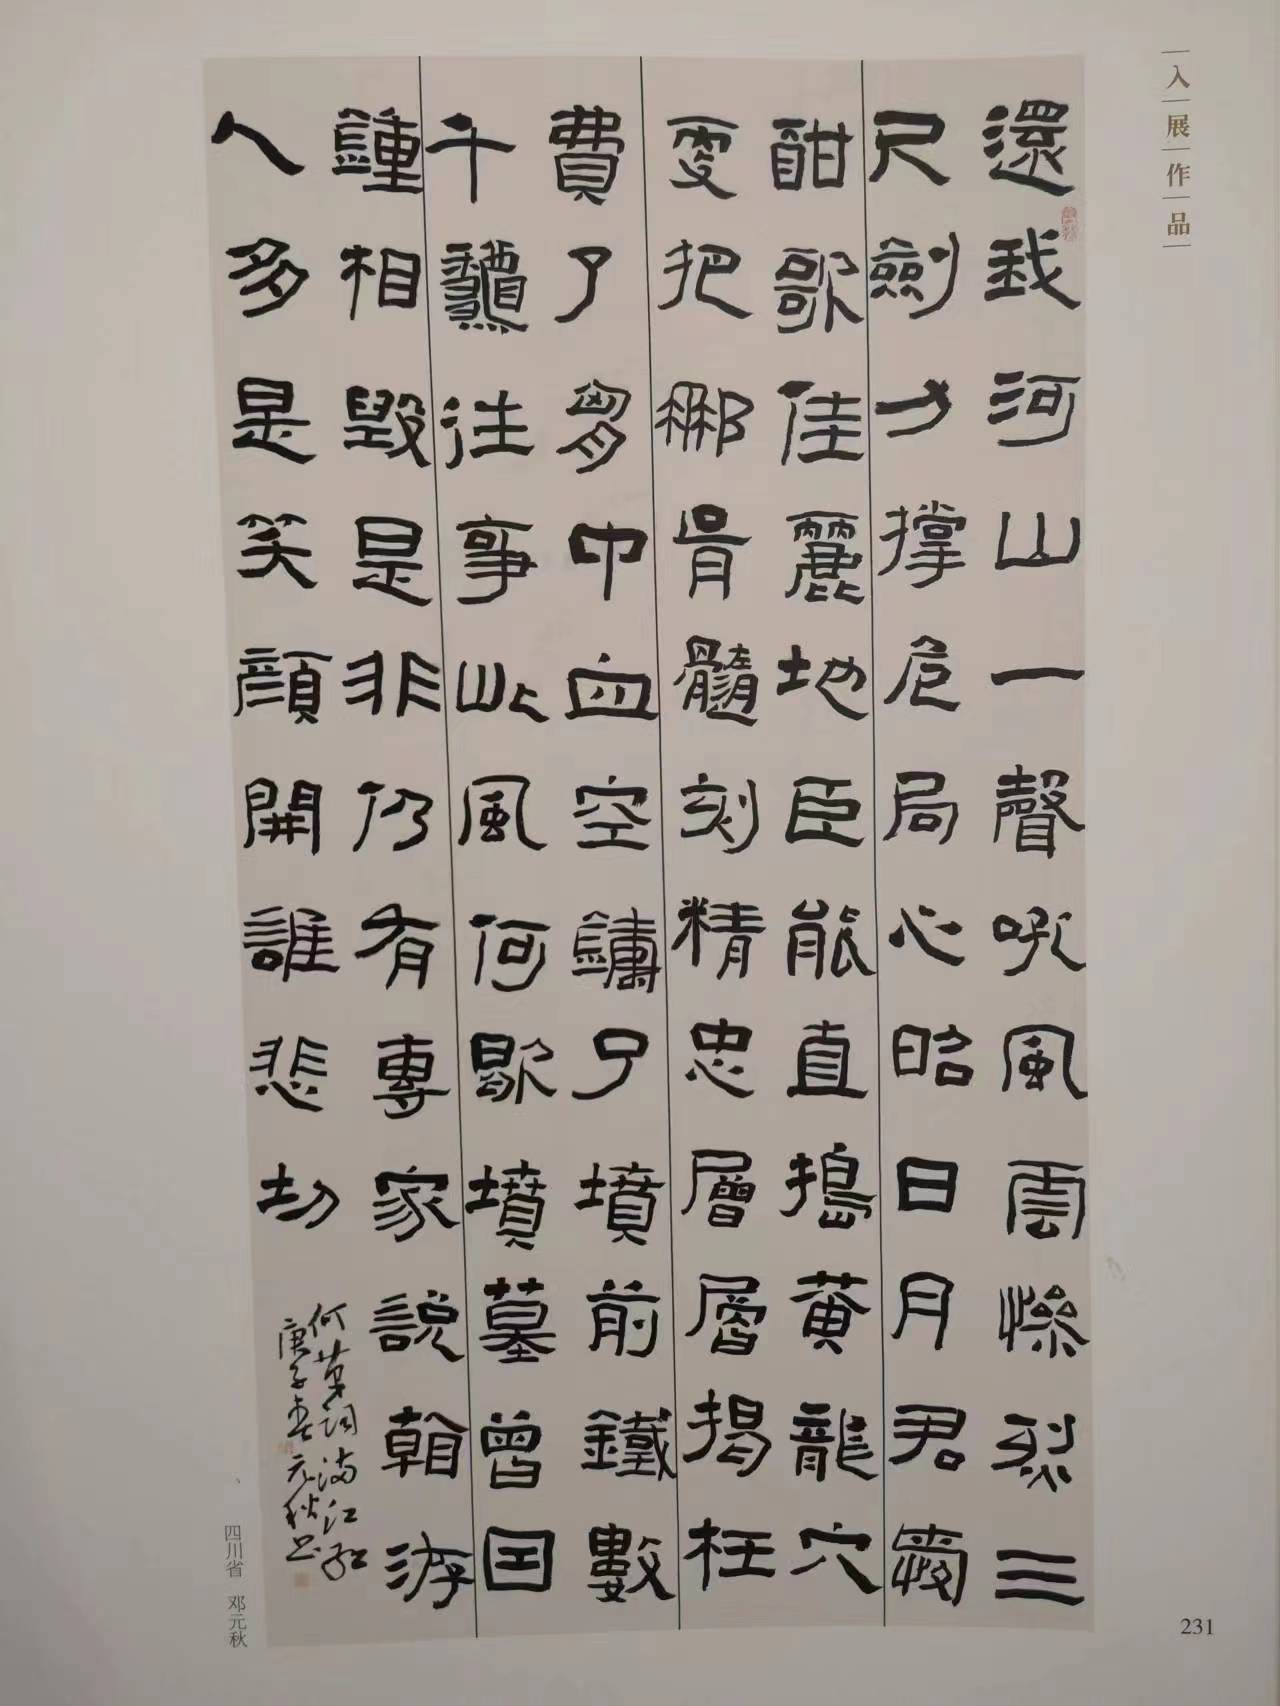 入展作品
還我河山一聲吼風雲慘烈三
尺劍力撐危局心昭日月君
酣歌佳麗地臣能直搗黃龍穴
更把那骨髓刻精忠層層揭枉
費了胸中血空鑄了墳前鐵數
千龝往事此風何歇墳墓曾因
鍾相毀是非仍有專家說翰游
人多是笑顏開誰悲切
何革词满江红
庚子春元秋书
四川省 邓元秋
231